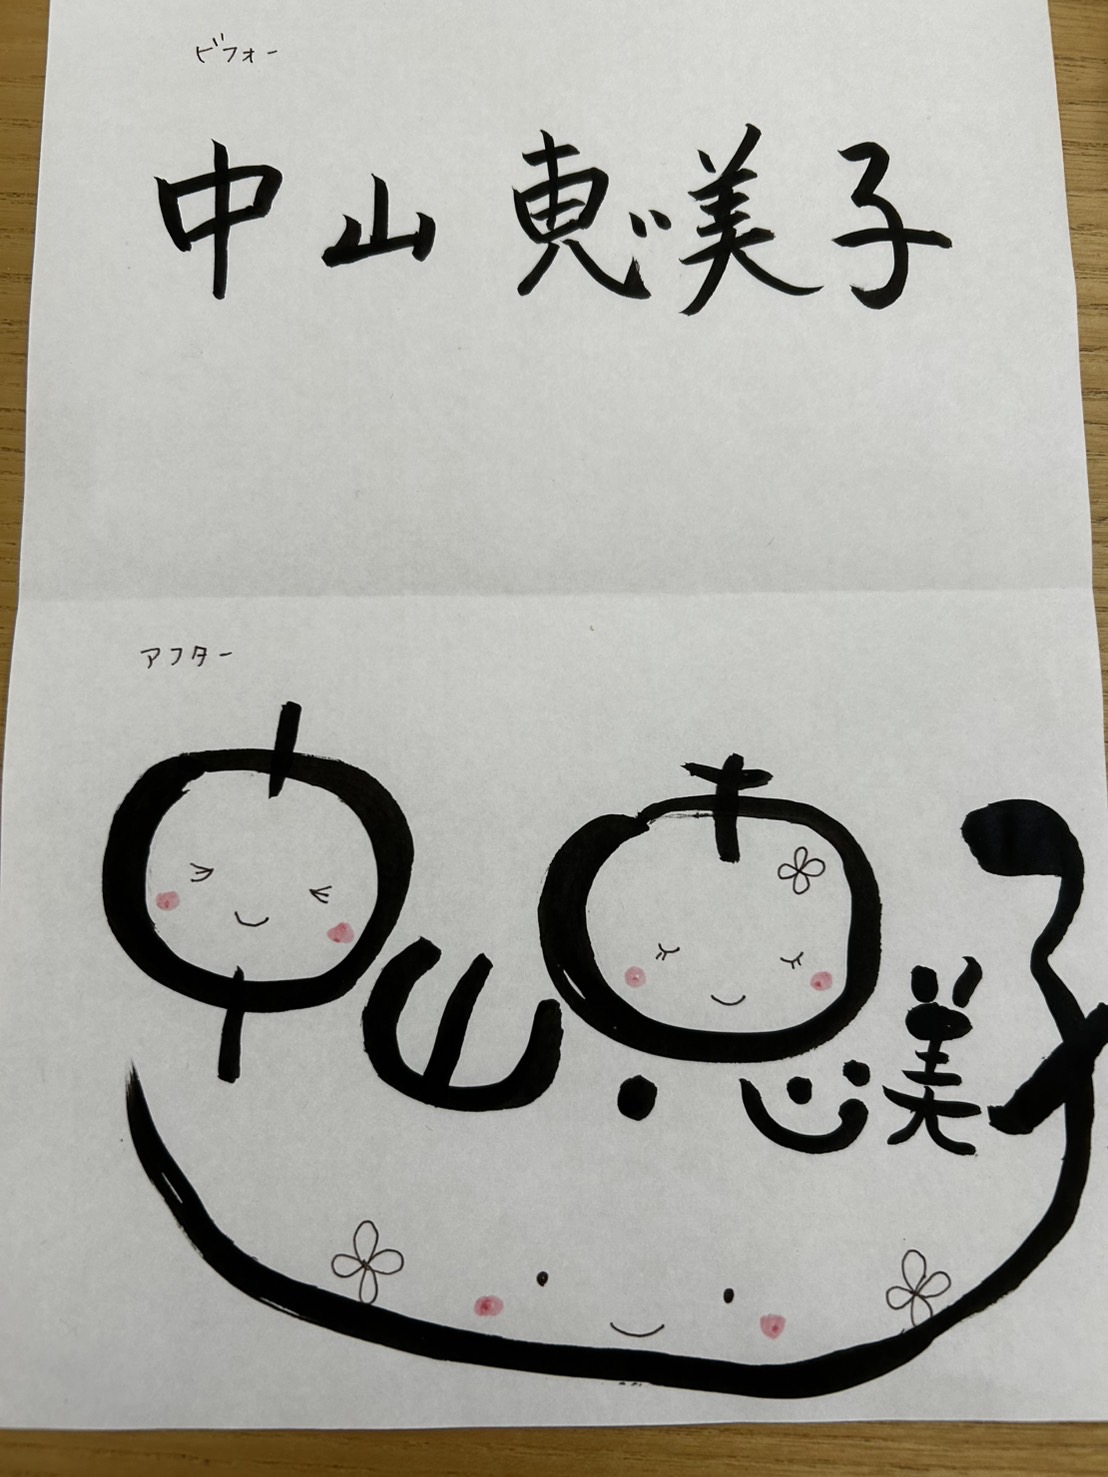 ビフォー
中山恵美子
アフター
中山恵美子